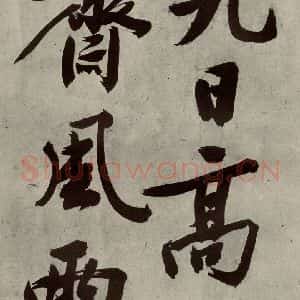 九日高
齋風雨
Shufawang.CN